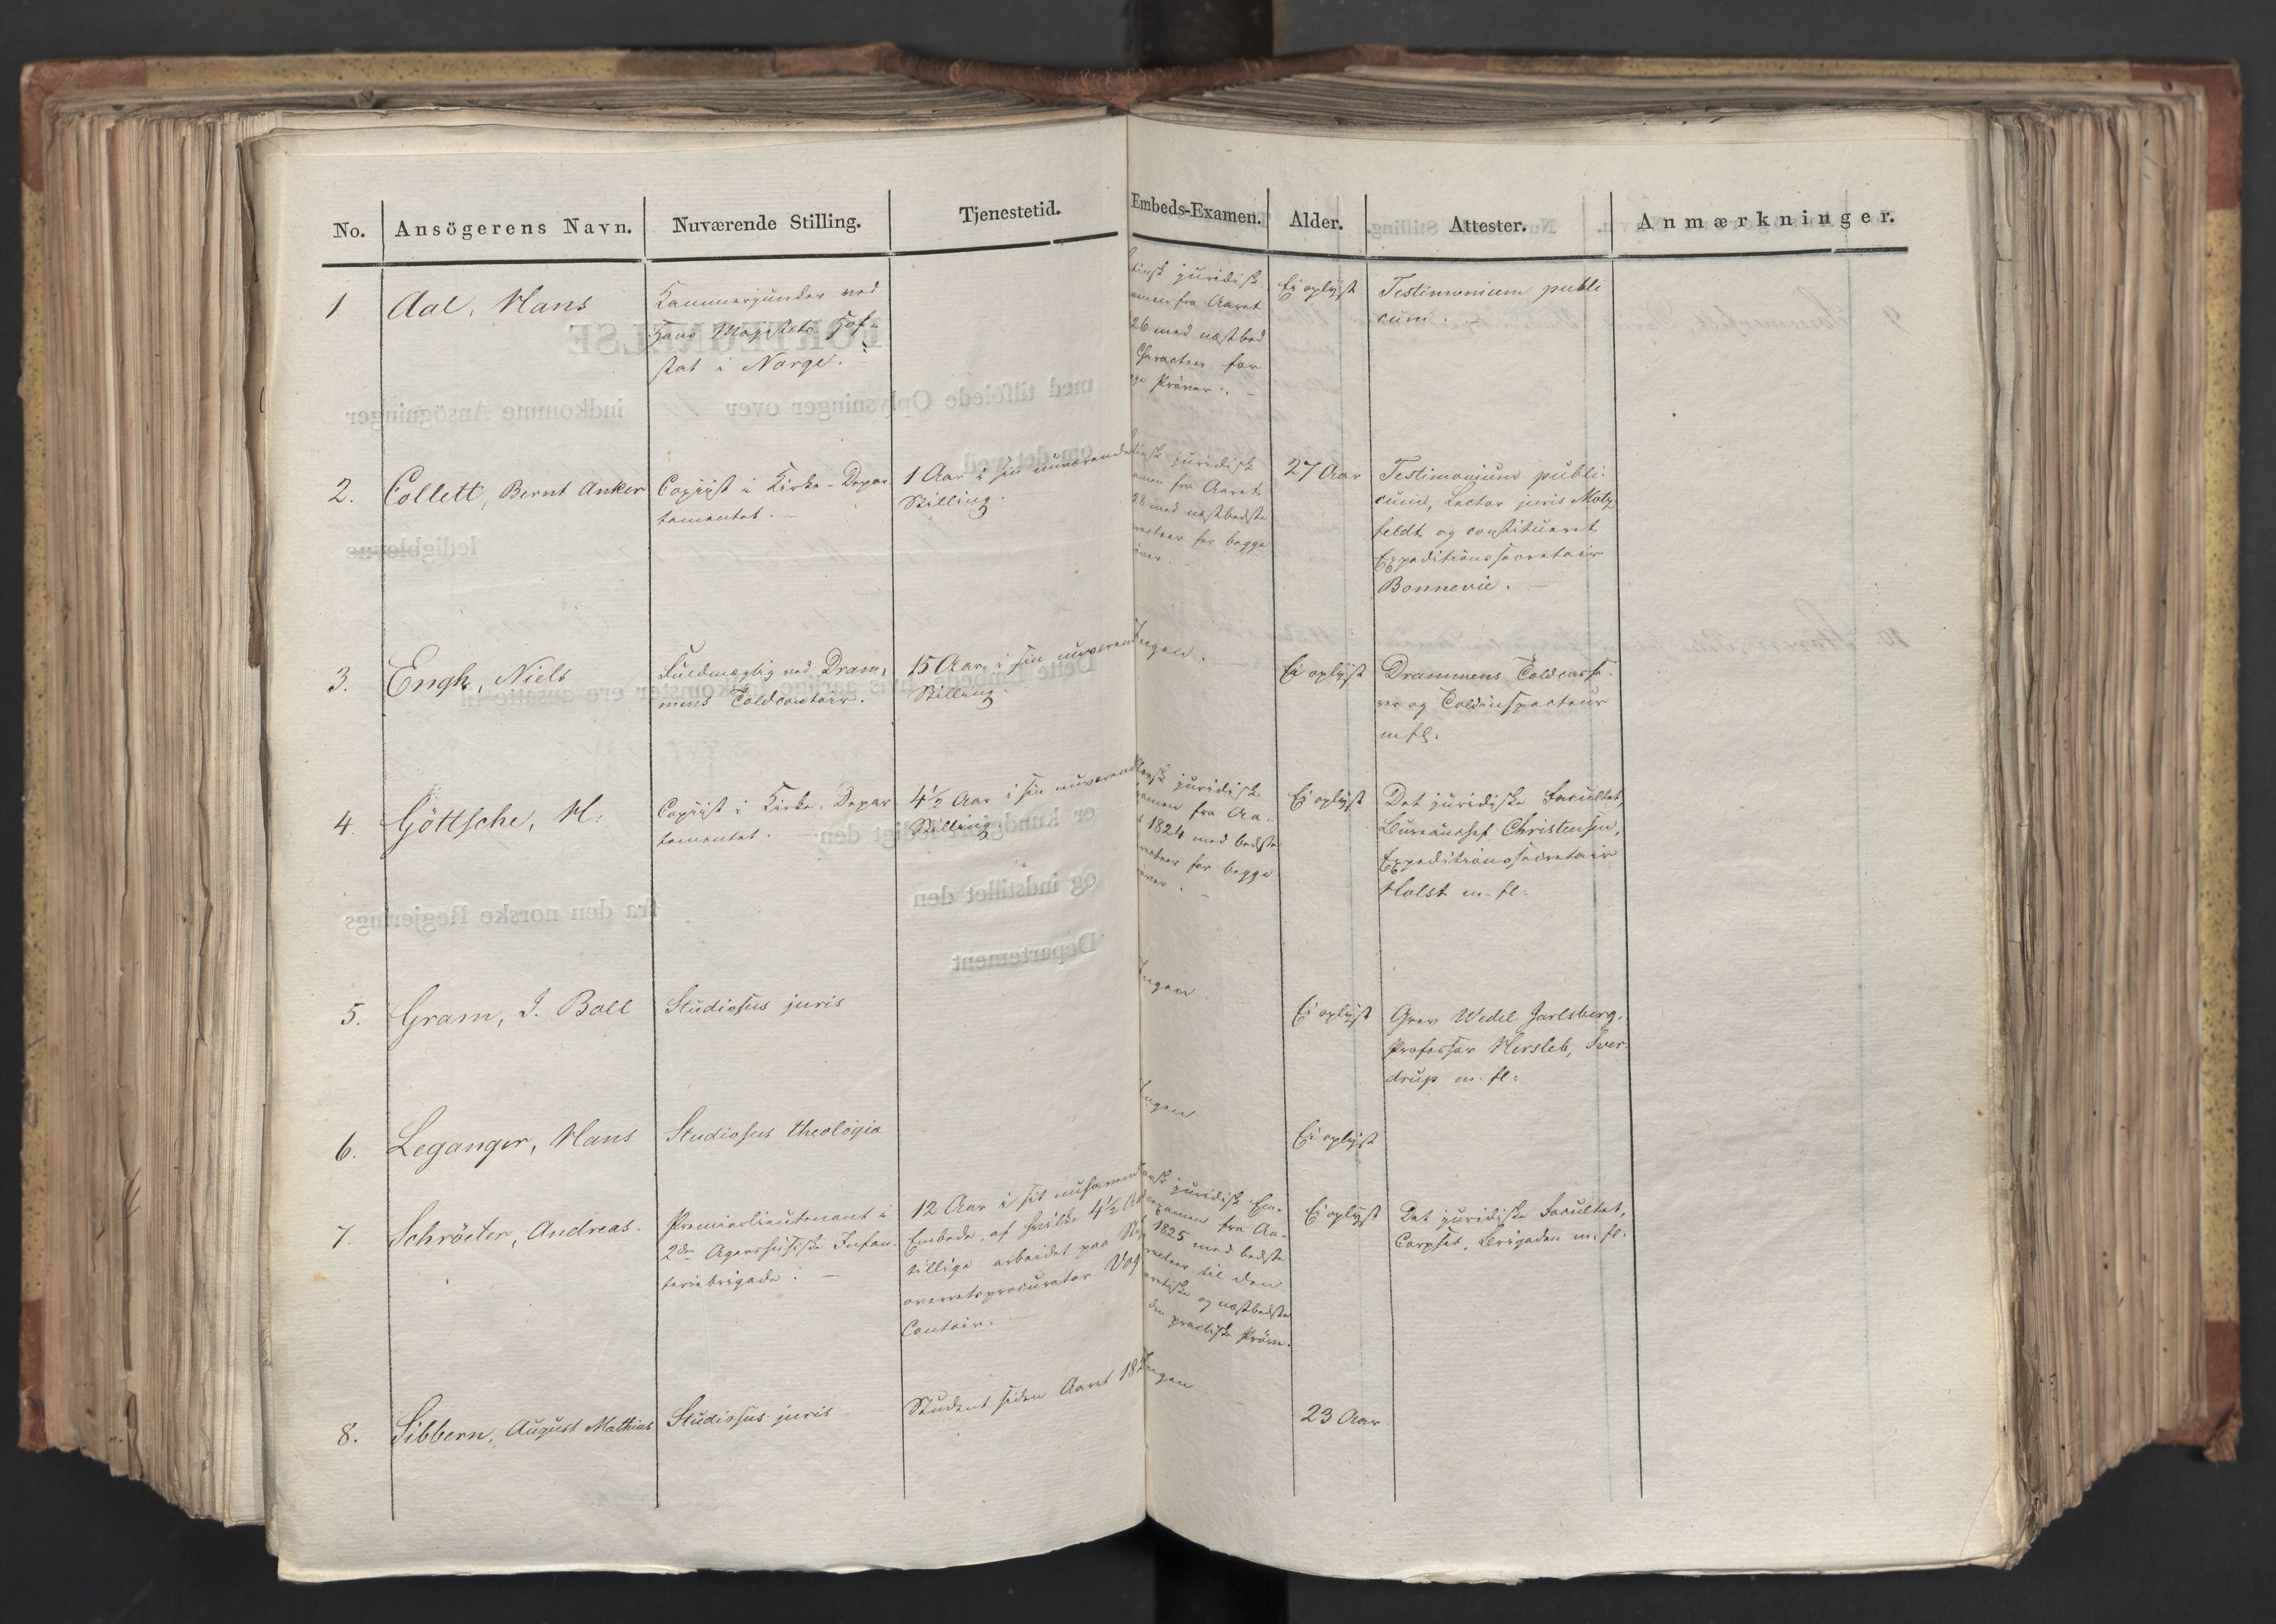 No. Ansögerens Navn. Nuværende Stilling. Tjenestetid. Embeds-Examen. Alder. Attester. Anmærkninger.
1. Aal, Hans
Kammerjunker ved
Hans Majestæts Hof-
stat i Norge.
tinsk juridisk
amen fra Aaret
26 med næstbed
Characteer for
ge Prøver.
Ei oplyst
Testimonium publi
cum.
2. Collett, Bernt Anker
Copiist i Kirke-Depar
tementet.
1 Aar i sin nuværende
Stilling.
tinsk juridisk
amen fra Aaret
28 med næstbedste
racteer for begge
øver.
27 Aar
Testimonium publi-
cum, Lector juris Motz
feldt og constitueret
Expeditionssecretair
Bonnevie.
3. Engh, Niels
Fuldmægtig ved Dram-
mens Toldcontoir.
15 Aar i sin nuværen
Stilling.
Ingen.
Ei oplyst
Drammens Toldcasse-
rer og Toldinspecteur
m fl.
4. Göttsche, M:
Copiist i Kirke-Depar
tementet.
4½ Aar i sin nuværend
Stilling
nsk juridisk
amen fra Aa-
t 1824 med bedste
racteer for begge
øver.
Ei oplyst
Det juridiske Facultet,
Bureauchef Christensen,
Expeditionssecretair
Holst m. fl.
5. Gram, J. Boll
Studiosus juris
Ingen
Ei oplyst
Grev Wedel Jarlsberg,
Professor Hersleb, Sver-
drup m. fl:
6. Leganger, Hans
Studiosus theologia
Ingen
Ei oplyst
7. Schröeter, Andreas.
Premierlieutenant i
2den Agershusiske Infan-
teriebrigade.
12 Aar i sit nuhavend
Embede, af hvilke 4½ Aa
tillige arbeidet paa
overretsprocurator
Contoir.
nsk juridisk Em-
examen fra Aa-
t 1825 med bedste
racteer til den
oretiske og næstbedste
den practiske Prøve.
Ei oplyst
Det juridiske Facultet,
Corpset, Brigaden m. fl.
8. Sibbern, August Mathias
Studiosus juris
Student siden Aaret 182
Ingen
23 Aar